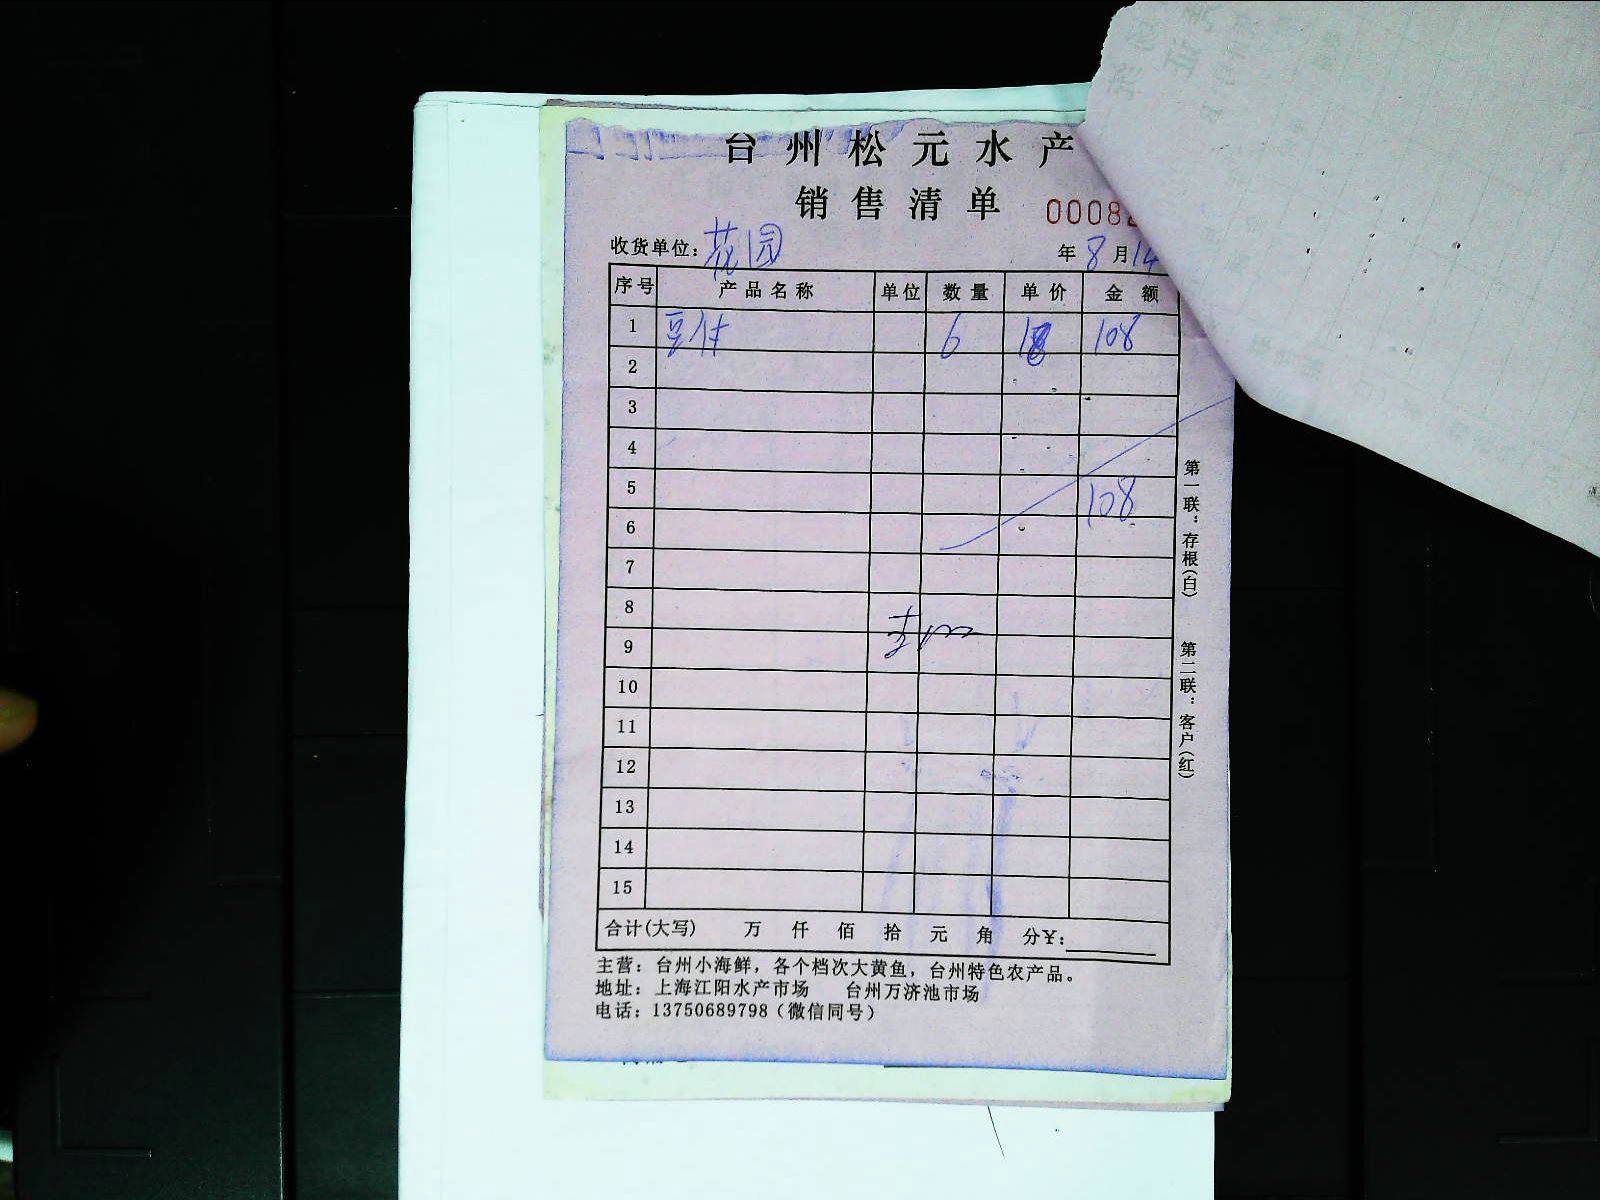 台州松元水产
销售清单 0008
收货单位: 花园 年 8 月 14
序号 产品名称 单位 数量 单价 金额
1 豆付 6 18 108
2
3
4
5 108
6
7
8
9
10
11
12
13
14
15
合计(大写) 万 仟 佰 拾 元 角 分¥:
主营：台州小海鲜，各个档次大黄鱼，台州特色农产品。
地址：上海江阳水产市场 台州万济池市场
电话：13750689798（微信同号）
第一联：存根(白) 第二联：客户(红)